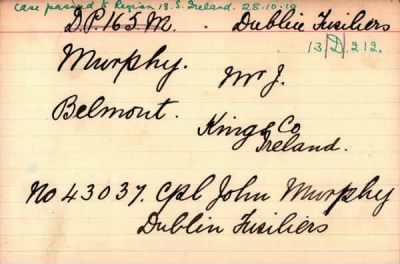 Case passed to Region 13. S. Ireland. 28-10-19
D.P. 165 M. . Dublin Fusiliers
13/D/212.
Murphy. Mr J.
Belmont. Kings Co
Ireland.
No 43037. Cpl John Murphy
Dublin Fusiliers